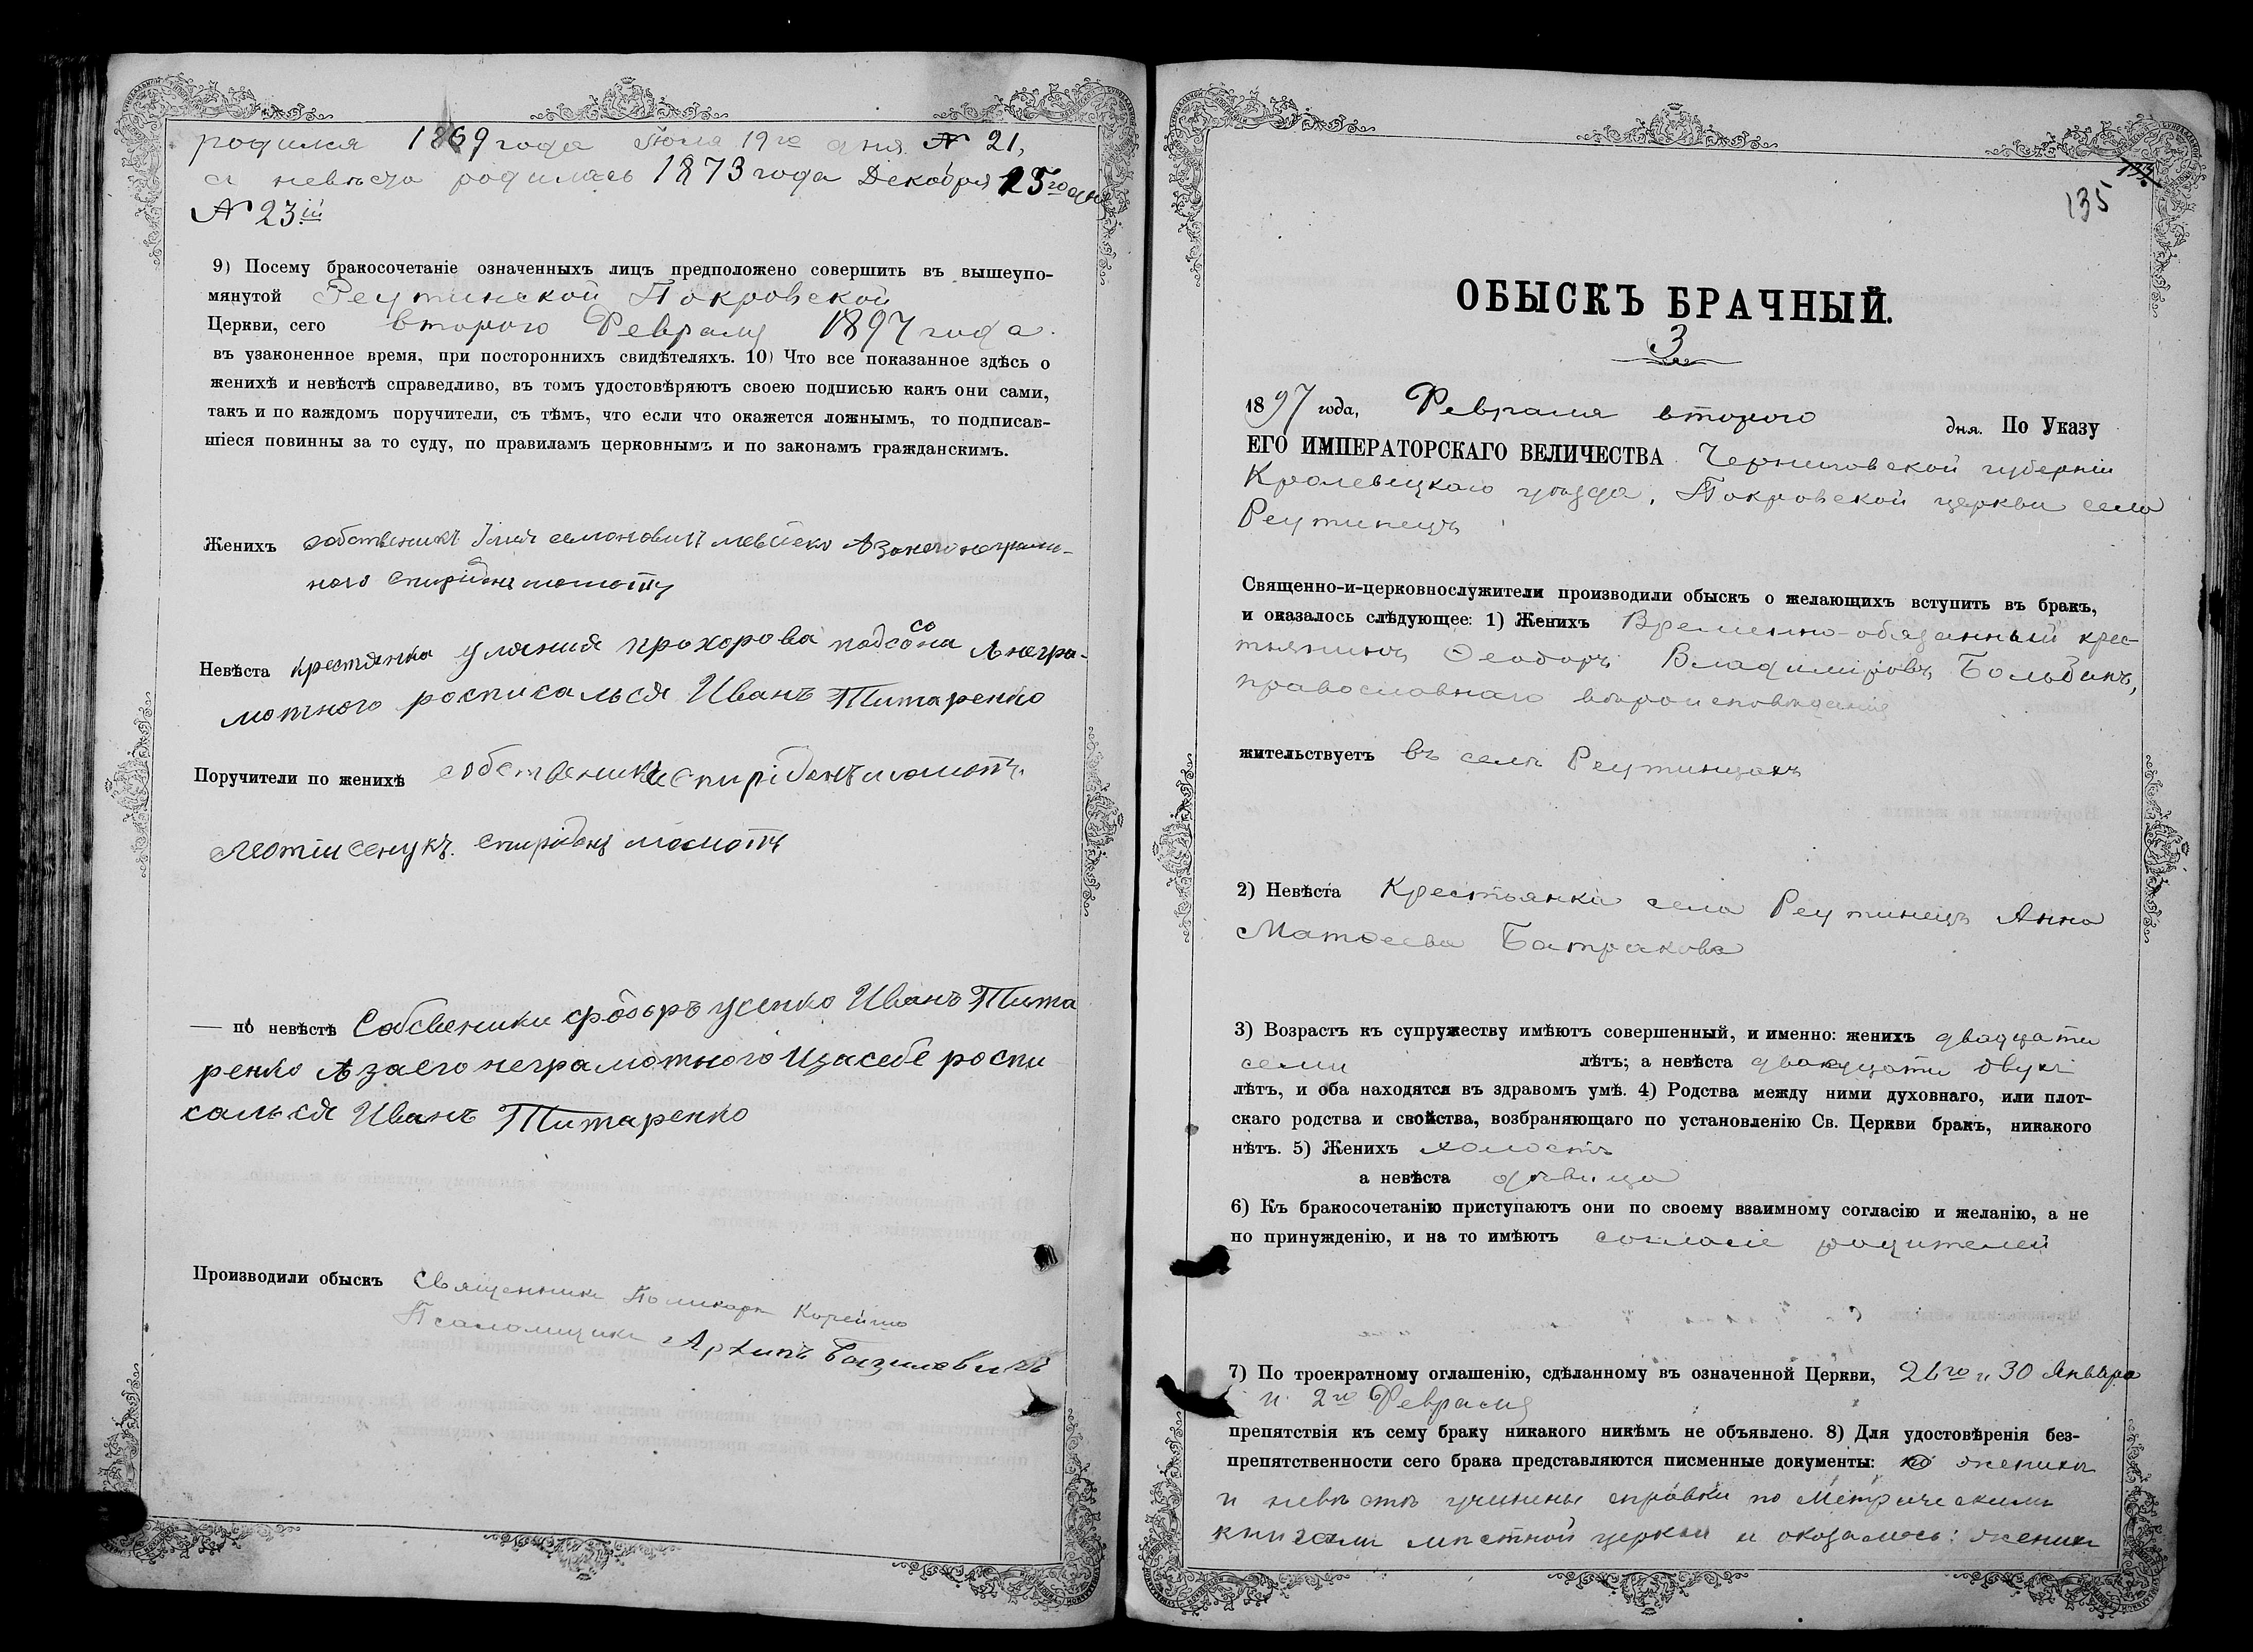 родился 1869 года Іюля 19го дня № 21,
а невѣста родилась 1873 года Декабря 25го дня
№ 23ій
9) Посему бракосочетаніе означенныхъ лицъ предположено совершить въ вышеупо-
мянутой Реутинской Покровской
Церкви, сего второго Февраля 1897 года.
въ узаконенное время, при постороннихъ свидѣтеляхъ. 10) Что все показанное здѣсь о
женихѣ и невѣстѣ справедливо, въ томъ удостовѣряютъ своею подписью какъ они сами,
такъ и по каждомъ поручители, съ тѣмъ, что если что окажется ложнымъ, то подписав-
шіеся повинны за то суду, по правиламъ церковнымъ и по законамъ гражданскимъ.
Женихъ собственикъ
Невѣста крестянка уляния прохорова А негра-
мотного росписалься Иванъ Титаренко
Поручители по женихѣ
— по невѣстѣ Собсвеники Иванъ Тита
ренко А заего неграмотного изасебе роспи
салься Иванъ Титаренко
Производили обыскъ Священникъ Поликарпъ Корейша
Псаломщикъ Архипъ Базилевичъ
135
ОБЫСКЪ БРАЧНЫЙ.
3
1897 года, Февраля второго дня. По Указу
ЕГО ИМПЕРАТОРСКАГО ВЕЛИЧЕСТВА Черниговской губерніи
Кролевецкаго уѣзда, Покровской церкви села
Реутинецъ
Священно-и-церковнослужители производили обыскъ о желающихъ вступить въ бракъ,
и оказалось слѣдующее: 1) Женихъ Временно-обязанный крес-
тьянинъ Ѳеодоръ Владиміровъ Больбанъ,
православнаго вѣроисповѣданія
жительствуетъ въ селѣ Реутинцахъ
2) Невѣста Крестьянка села Реутинецъ Анна
Матѳеева Батракова
3) Возрастъ къ супружеству имѣютъ совершенный, и именно: женихъ двадцати
семи лѣтъ; а невѣста двадцати двухъ
лѣтъ, и оба находятся въ здравомъ умѣ. 4) Родства между ними духовнаго, или плот-
скаго родства и свойства, возбраняющаго по установленію Св. Церкви бракъ, никакого
нѣтъ. 5) Женихъ холостъ
а невѣста дѣвица
6) Къ бракосочетанію приступаютъ они по своему взаимному согласію и желанію, а не
по принужденію, и на то имѣютъ согласіе родителей
7) По троекратному оглашенію, сдѣланному въ означенной Церкви, 26го и 30 Января
и 2го Февраля
препятствія къ сему браку никакого никѣмъ не объявлено. 8) Для удостовѣренія без-
препятственности сего брака представляются писменные документы: женихѣ
и невѣстѣ учинены справки по Метрическимъ
книгамъ мѣстной церкви и оказалось: женихъ